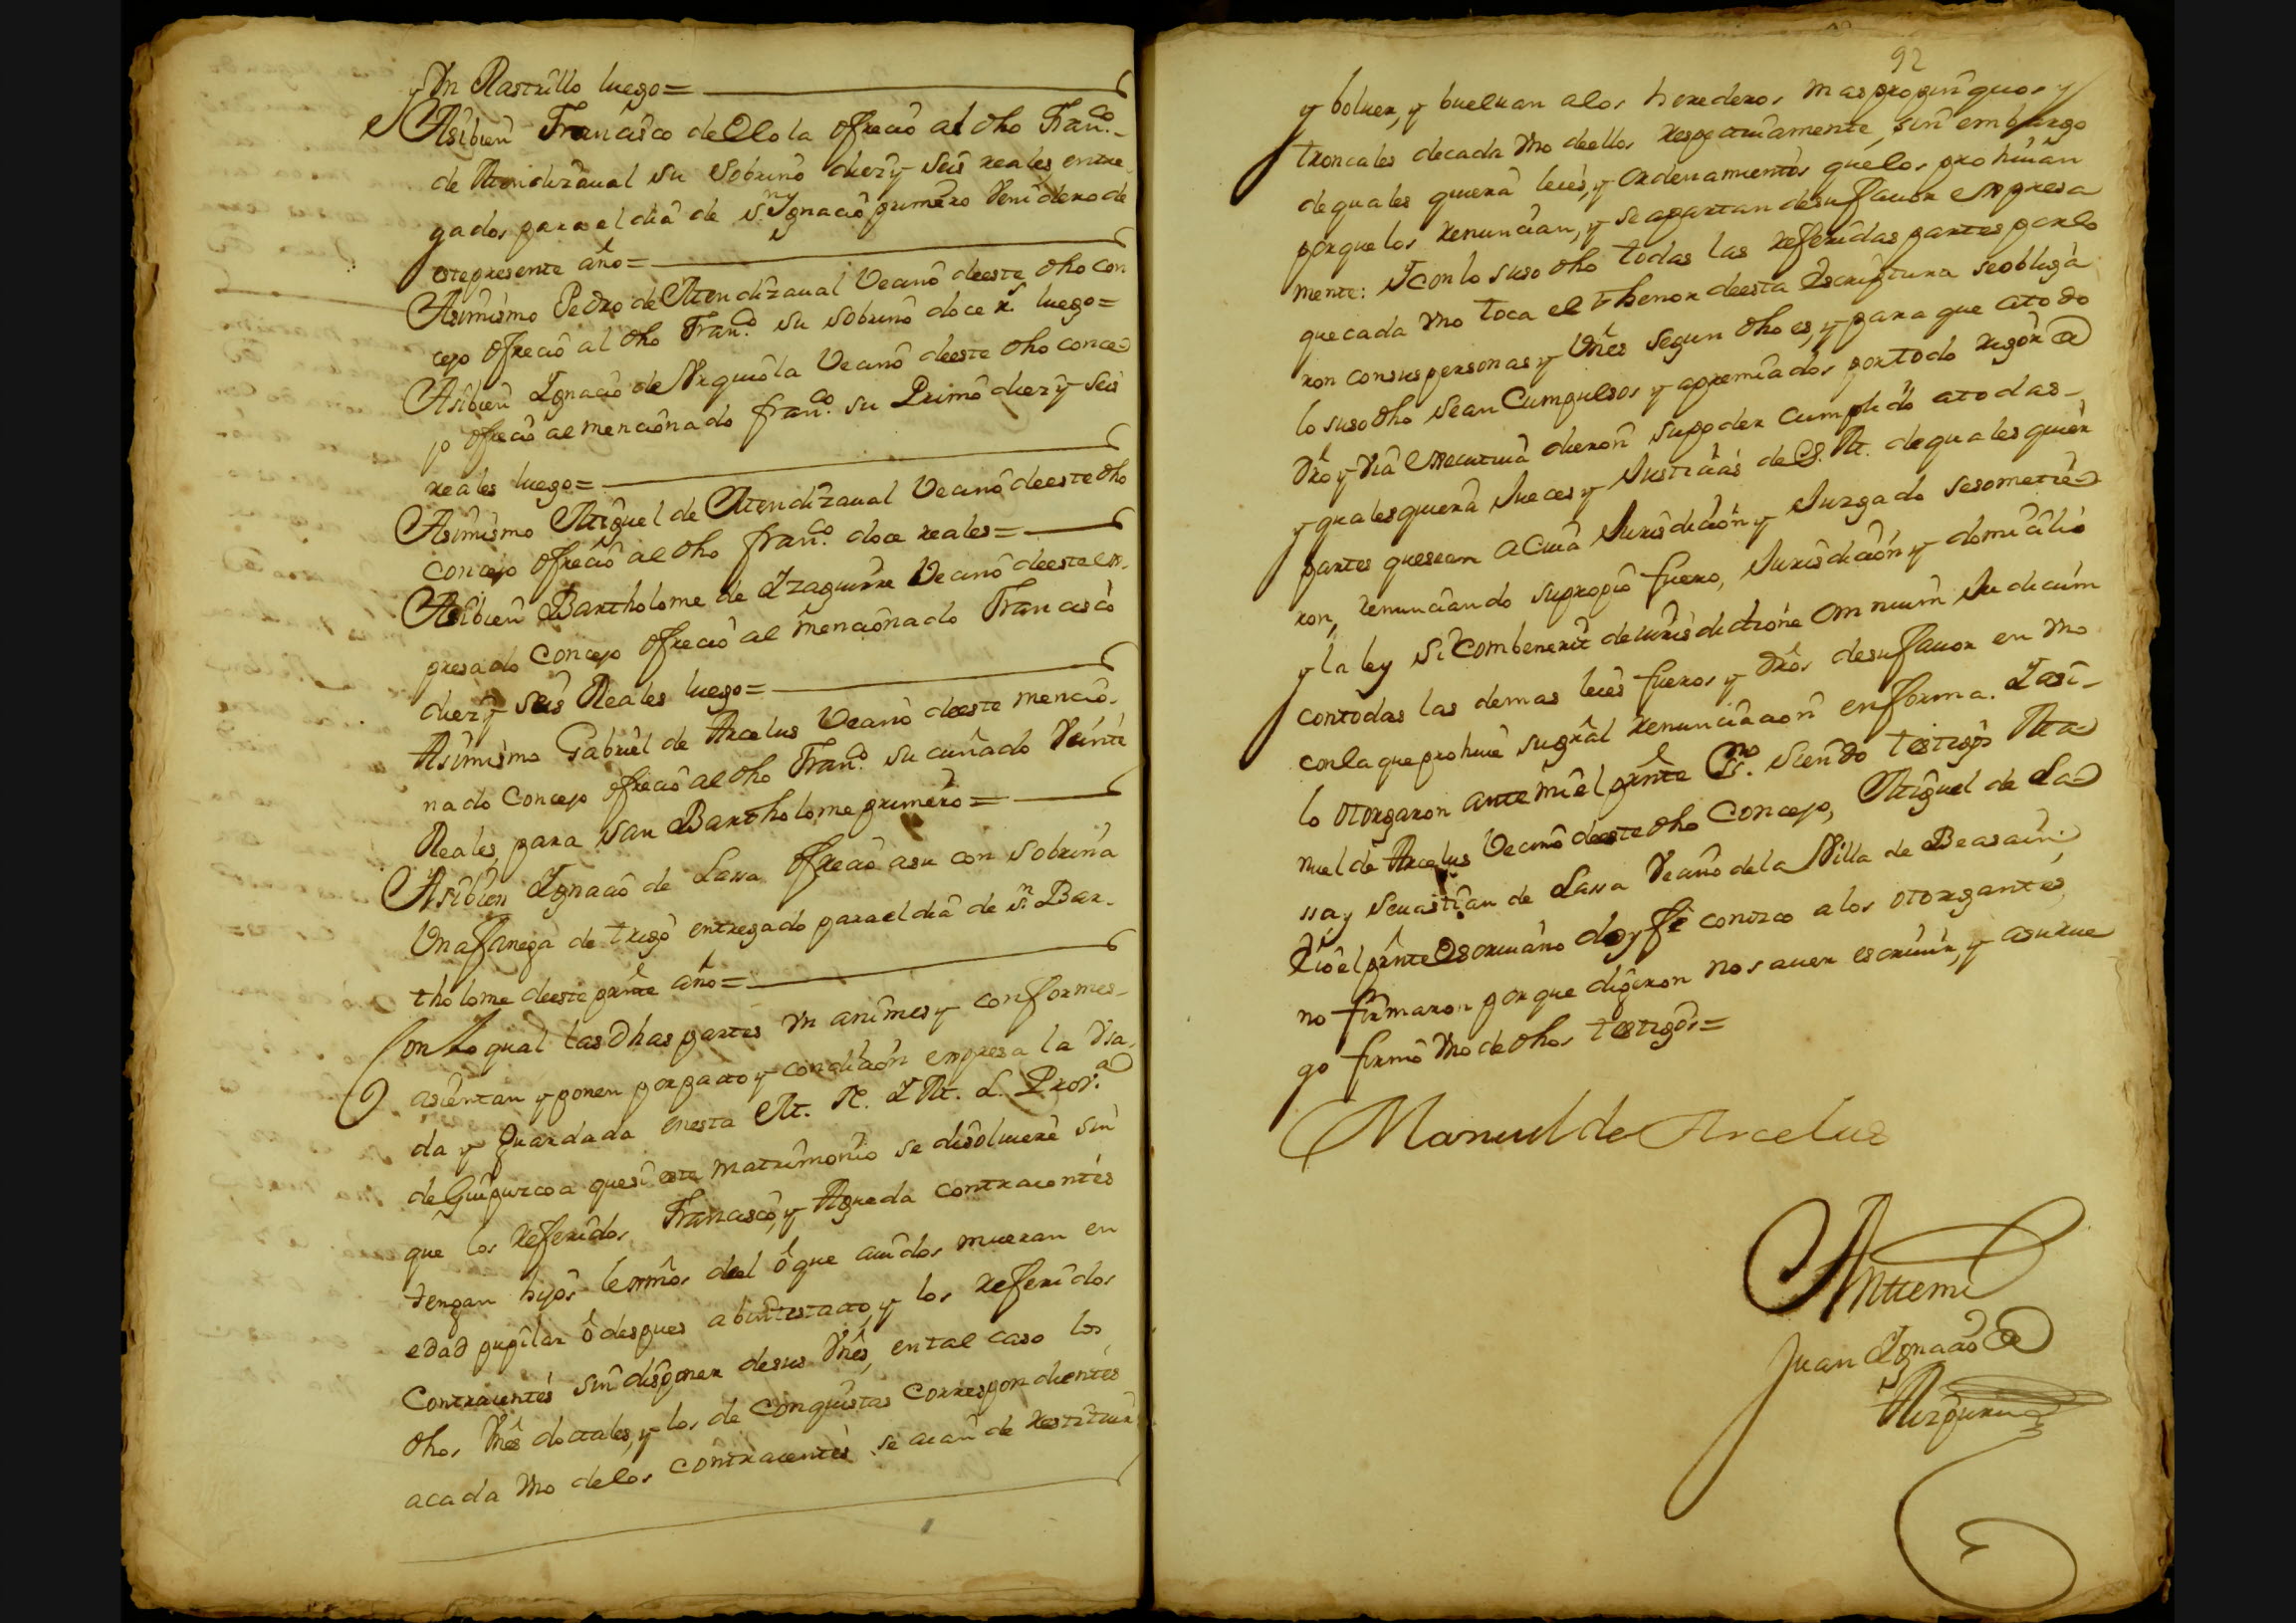 Un Rastrillo luego=
Asibien Francisco de Olola ofrecio al dho Franco.
de Mendizaual su Sobrino diez y seis reales entre
gados para el dia de Sn. Ygnacio primero Venidero de
este presente año=
Asimismo Pedro de Mendizaual Vecino deeste dho con
cejo ofrecio al dho Franco. su sobrino doce rs. luego=
Asibien Ygnacio de Vrquiola Vecino deeste dho conce
jo ofrecio al mencionado franco. su Primo diez y seis
reales luego=
Asimismo Miguel de Mendizaual Vecino deeste dho
concejo ofrecio al dho franco. doce reales=
Asibien Bartholome de Yzaguirre Vecino deeste ex.
presado concejo ofrecio al mencionado Francisco
diez y seis Reales luego=
Asimismo Gabriel de Arcelus Vecino deeste mencio.
nado Concejo ofrecio al dho Franco. su cuñado Veinte
Reales, para san Bartholome primero=
Asibien Ygnacio de Lassa ofrecio asu con sobrina
Una fanega de trigo entregado para el dia de Sn. Bar.
tholome deeste prnte año=
Con Lo qual las Dhas partes Vnanimes y conformes
asientan y ponen por pacto y condicion expresa la Vsa.
da y Guardada enesta M. N. Y M. L. Prova.
de Guipuzcoa que si este matrimonio se disoluiere sin
que los referidos Francisco, y Agueda contraientes
tengan hijos lexmos. del ô que auidos mueran en
edad pupilar ô despues abintestato, y los referidos
Contraientes sin disponer desus Vnês, ental caso los
dhos Vnês dotales, y los de conquistas correspondientes
acada Vno delos contraientes se aian de restituir
92
y boluer, y bueluan alos herederos mas propinquos y
troncales decada Vno deellos respectiuamente, sin embargo
de quales quiera leies, y ordenamientos que lo prohiuan
porque los renuncian, y se apartan desu fauor expresa
mente: Y con lo suso dho todas las referidas partes por lo
que cada Vno toca el thenor deesta Escriptura se obliga
ron consus personas y Vnês segun dho es, y para que a todo
lo suso dho sean Cumpulsos y apremiados por todo rigor de
Dro y via executiua dieron su poder cumplido atodas
y qualesquiera Jueces y Justicias de S. M. de quales quier
partes que sean acuia Jurisdicion y Juzgado sesometie
ron, renunciando su propio fuero, Jurisdicion y domicilio
y la ley Si Combenerit de Jurisdictione omnium Judicum
con todas las demas leies fueros y dros desu fauor en vno
con la que prohiue su gral renunciacion en forma. Y asi
lo otorgaron ante mi el prnte Ssno. siendo testigos Ma
nuel de Arcelus Vecino deeste dho Concejo, Miguel de La
ssa y Seuastian de Lassa Vecino de la Villa de Beasain,
Y io el prnte Escriuano doy fe conozco a los otorgantes,
no firmaron por que digeron no sauer escriuir, y asu rue
go firmô Vno de dhos testigos=
Manuel de Arcelus
Anttemi
Juan Ygnacio de
Aizpuru